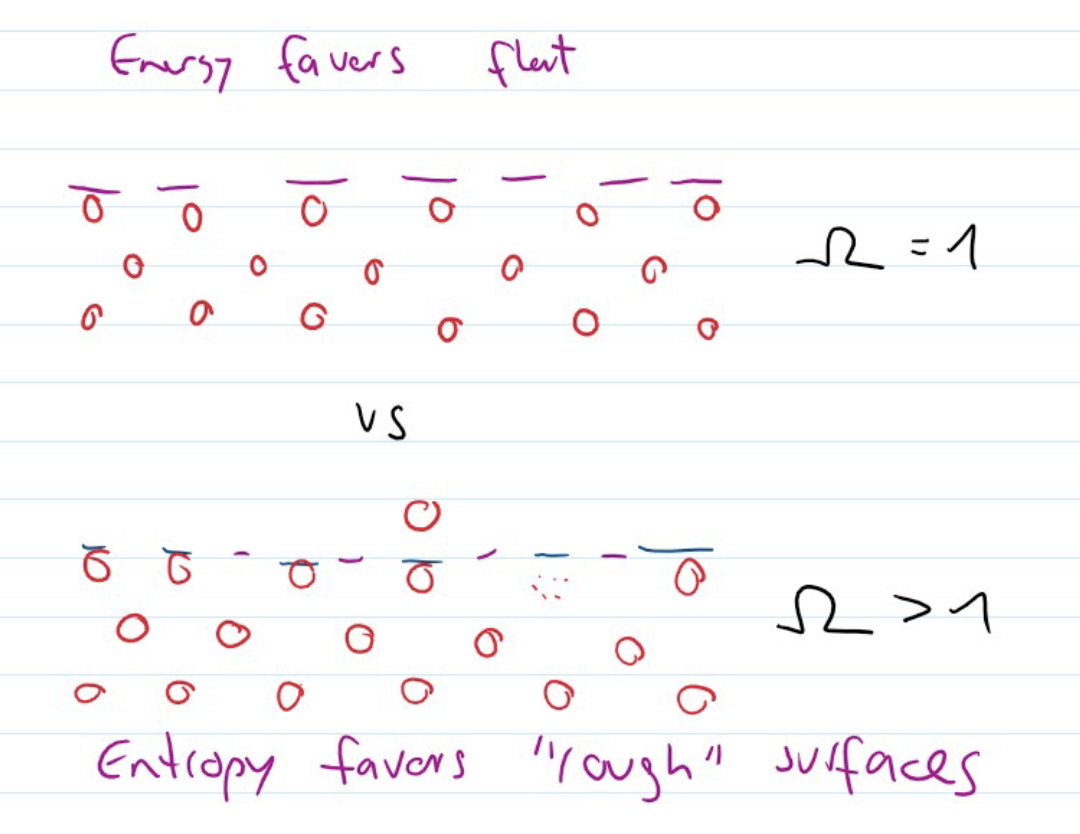 Energy favers flat
Ω = 1
vs
Ω > 1
Entropy favors "rough" surfaces